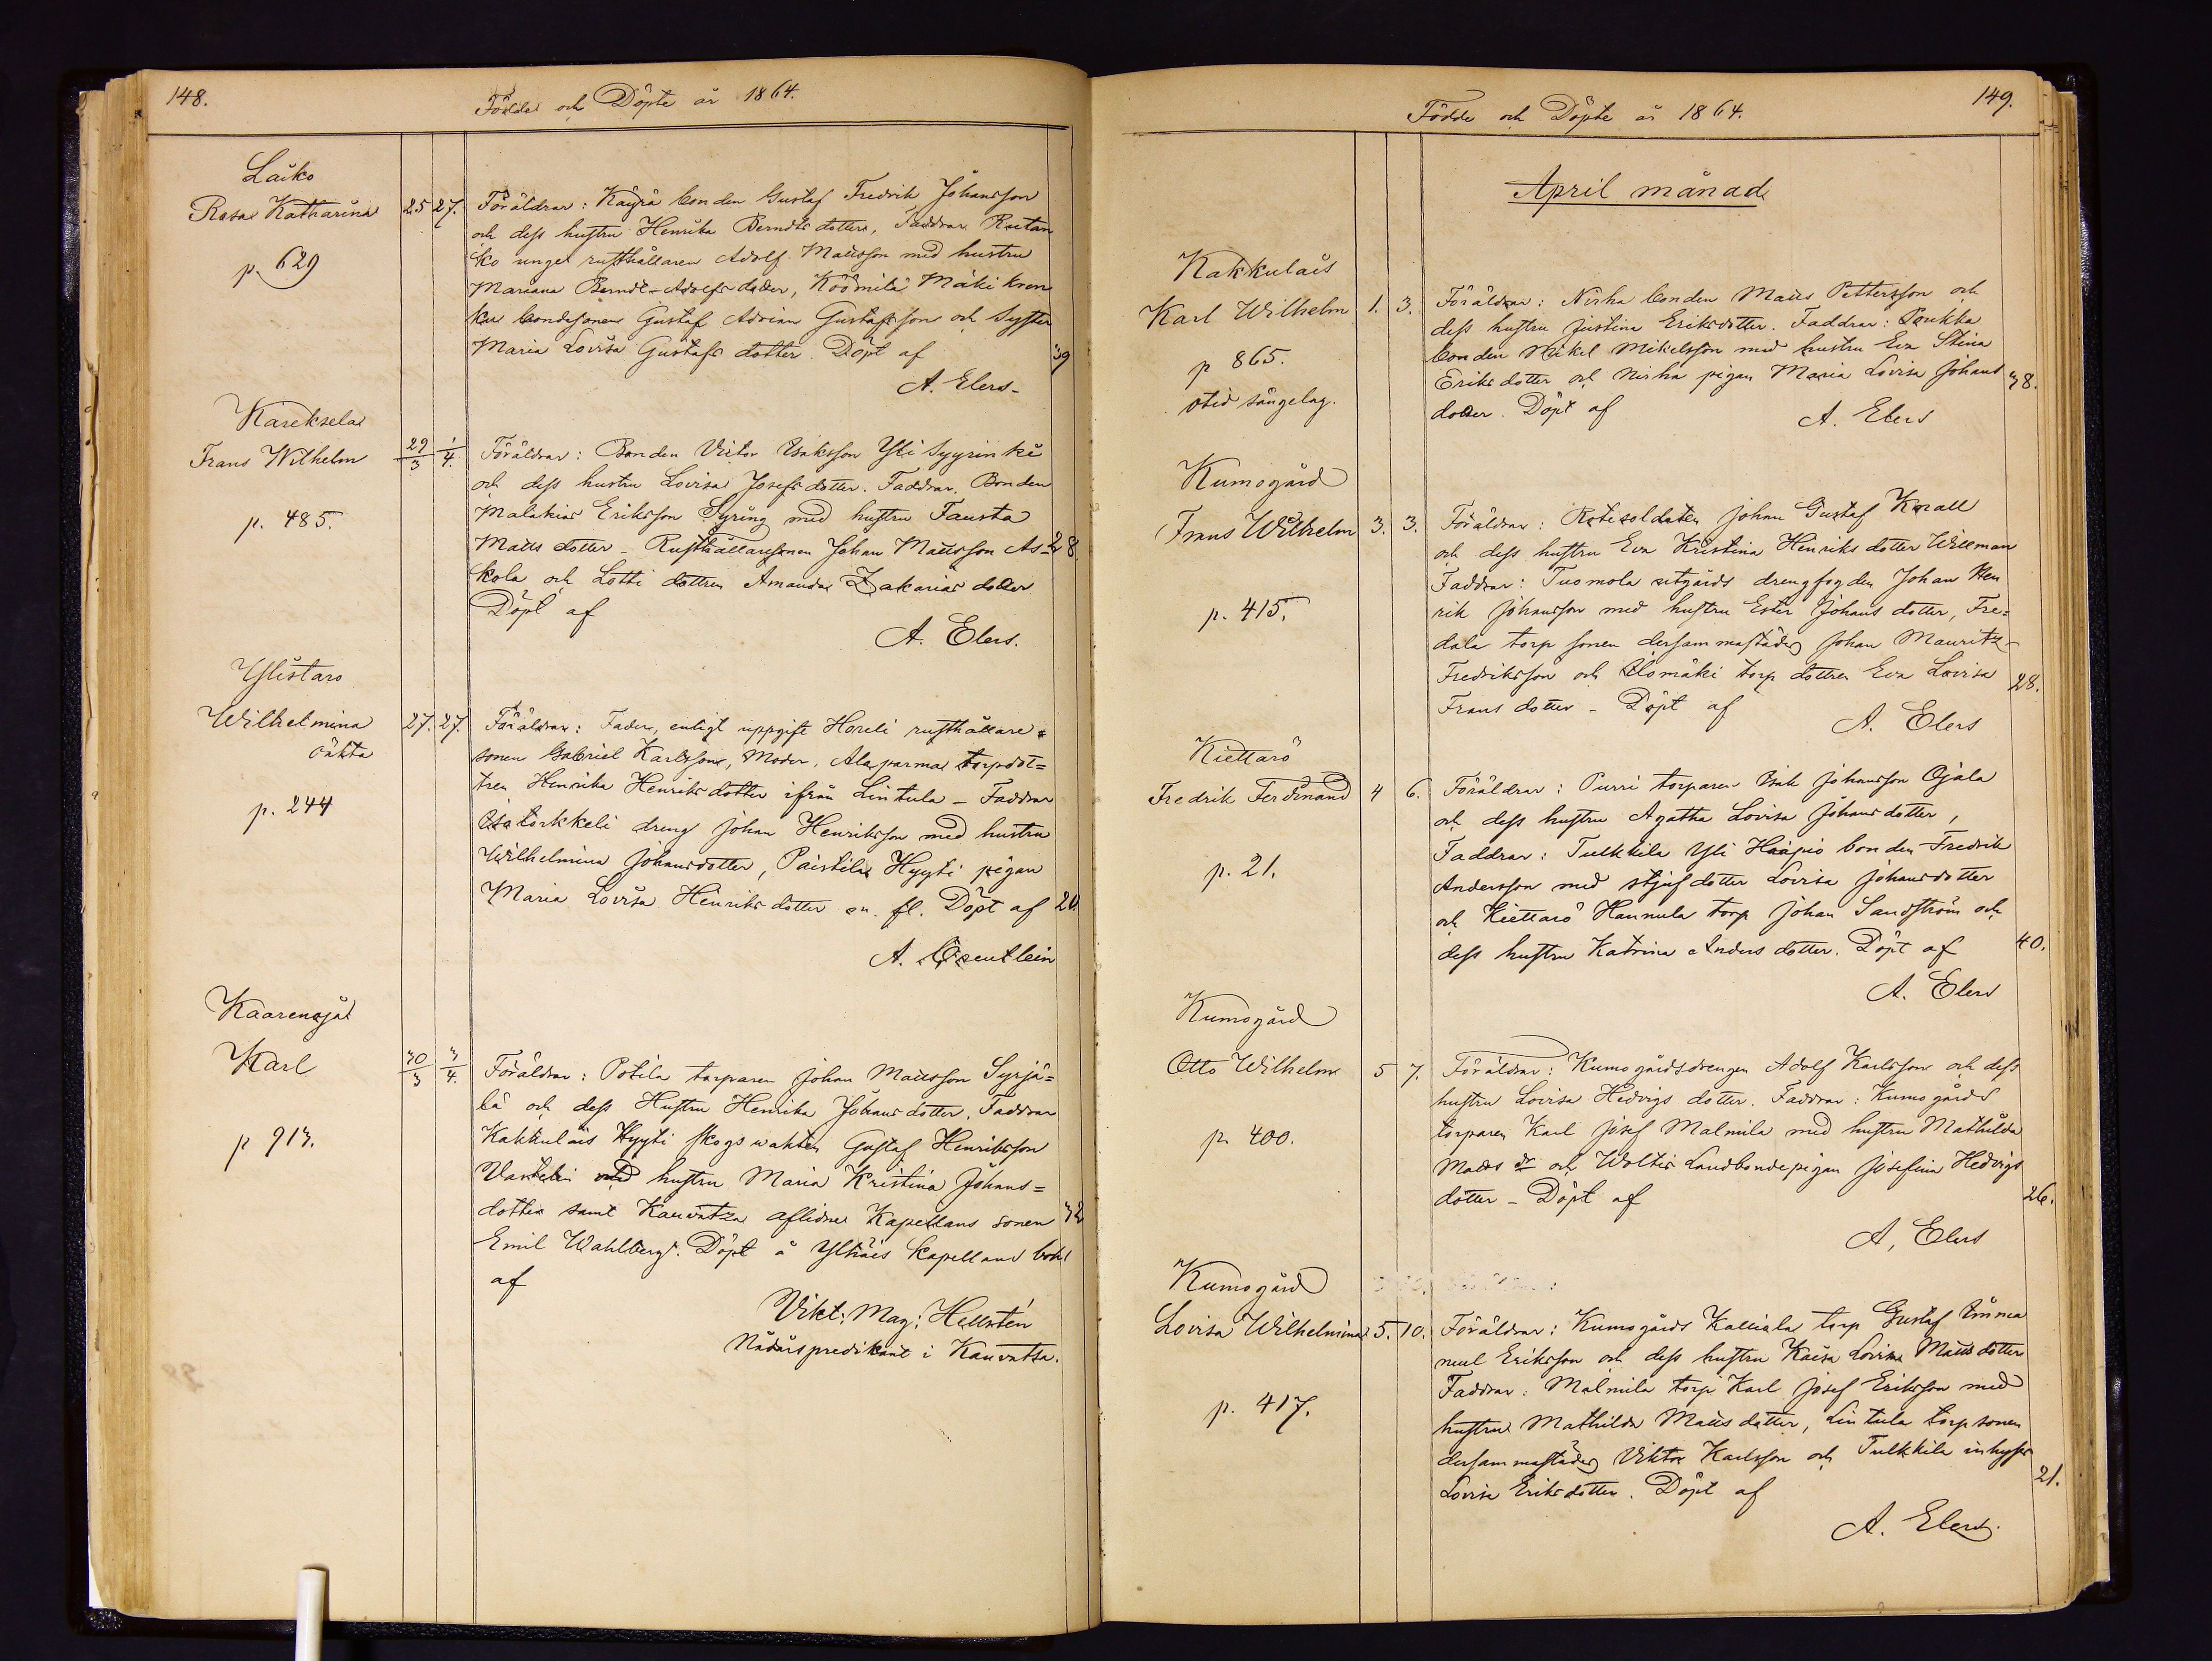 148.
Födde och Döpte år 1864.
Laiko
Rosa Katharina 25 27. Föräldrar: Käyrä bonden Gustaf Fredrik Johansson
och dess hustru Henrika Berndtsdotter, Faddrar Rutan
p. 629
ko unge rusthållaren Adolf Matsson med hustru
Mariana Berndt-Adolfsdotter, Köömilä Mäki kron
ku bondesonen Gustaf Adrian Gustafsson och Syster
Maria Lovisa Gustafsdotter. Döpt af 39
A. Elers.
Karekselas
Frans Wilhelm 29/3 1/4. Föräldrar: Bonden Victor Isaksson Yli Syyrinki
och dess hustru Lovisa Josefsdotter. Faddrar, Bonden
p. 485.
Malakias Eriksson Syring med hustru Fausta
Matts dotter - Rusthållaresonen Johan Mattsson As- 28
kola och Lotti dottren Amanda Zakarias dotter
Döpt af
A. Elers.
Ylistaro
Wilhelmina 27. 27. Föräldrar: Fader, enligt uppgift Horeli rusthållare=
oäkta
sonen Gabriel Karlsson, Moder, Alaparma torpdot=
p. 244
tren Henrika Henriksdotter ifrån Lintula - Faddrar
dreng Johan Henriksson med hustru
Wilhelmina Johansdotter, Paistila Hyyti pigan
Maria Lovisa Henriksdotter Döpt af 20.
A.
Kaarenoja
Karl 30/3 3/4. Föräldrar: Potila torparen Johan Mattsson Syrjä=
lä och dess Hustru Henrika Johansdotter, Faddrar
p 913.
Kakkulais Hyyti skogswakten Gustaf Henriksson
med hustru Maria Kristina Johans=
dotter samt Kauvatsa aflidne Kapellans sonen 32
Emil Wahlberg. Döpt å Ylstäis Kapellans bohl
af
Vikt: Mag: Hellstén
Nådårspredikant i Kauvatsa.
149.
Födde och Döpte år 1864.
April månad
Kakkulais
Karl Wilhelm 1. 3. Föräldrar: Nirha bonden Matts Pettersson och
dess hustru Justina Eriksdotter. Faddrar: Poukka
p 865.
bonden Mikel Mikelsson med hustru Eva Stina
Eriks dotter och Nirha pigan Maria Lovisa Johans 38.
otid sängelag.
dotter. Döpt af
A. Elers
Kumogård
Frans Wilhelm 3. 3. Föräldrar: Rotesoldaten Johan Gustaf Knall
och dess hustru Eva Kristina Henriks dotter Willman
Faddrar: Tuomola utgårds drengfogden Johan Hen
p. 415.
rik Johansson med hustru Ester Johans dotter, Fre=
dala torp sonen dersammastädes Johan Mauritz
Fredriksson och Elomäki torp dottren Eva Lovisa 28.
Frans dotter - Döpt af
A. Elers
Kiettarö
Fredrik Ferdinand 4 6. Föräldrar: Purri torparen Isak Johansson Ojala
och dess hustru Agatha Lovisa Johans dotter,
p. 21.
Faddrar: Tulkkila Yli Haapio bonden Fredrik
Andersson med stjuf dotter Lovisa Johansdotter
och Kiettarö Hannula torp Johan Sandström och
dess hustru Katrina Anders dotter. Döpt af 40.
A. Elers
Kumogård
Otto Wilhelm 5 7. Föräldrar: Kumogårdsdrengen Adolf Karlsson och dess
hustru Lovisa Hedvigs dotter. Faddrar: Kumogårds
p. 400.
torparen Karl Josef Malmila med hustru Mathilda
Matts dr och Woltis Landbondepigan Josefina Hedvigs
dotter - Döpt af 26.
A, Elers
Kumogård
Lovisa Wilhelmina 5. 10. Föräldrar: Kumogårds Kalliala torp Gustaf Emma
nuel Eriksson och dess hustru Kaisa Lovisa Matts dotter
Faddrar: Malmila torp Karl Josef Eriksson med
p. 417.
hustru Mathilda Matts dotter, Lintula torpsonen
dersammastädes Viktor Karlsson och Tulkkila inhyses
Lovisa Eriksdotter. Döpt af 21.
A. Elers.